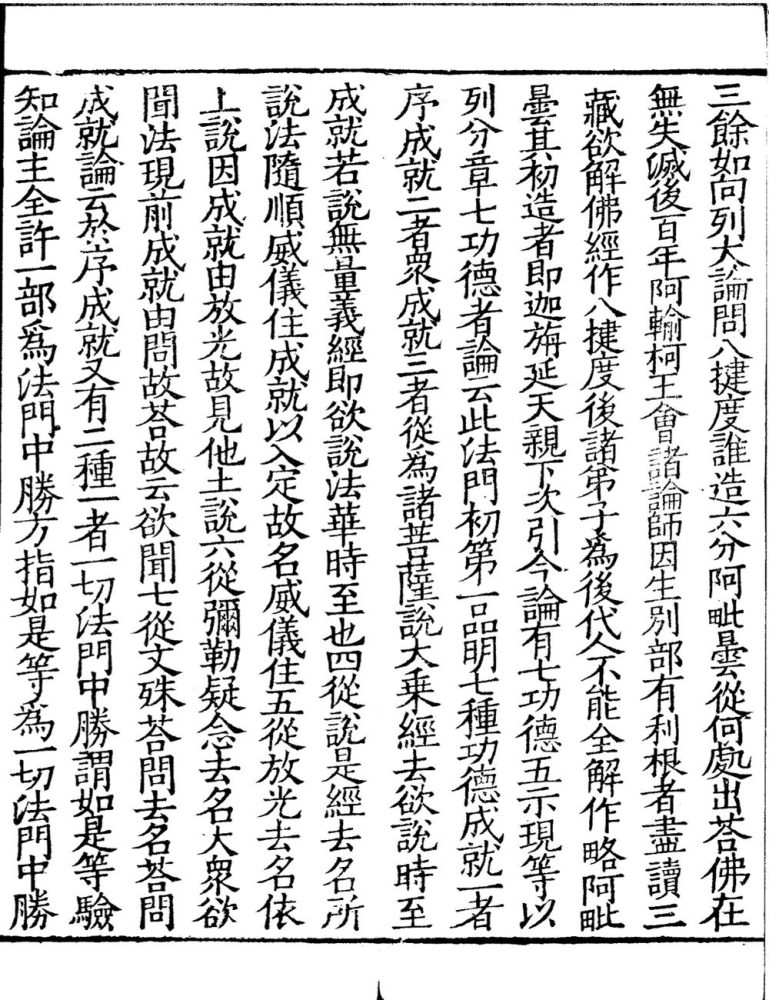 三餘如向列大論問八揵度誰造六分阿毗曇從何處出荅佛在
無失滅後百年阿輸柯王會諸論師因生別部有利根者盡讀三
藏欲解佛經作八揵度後諸弟子爲後代人不能全解作略阿毗
曇其初造者即迦旃延天親下次引今論有七功德五示現等以
列分章七功德者論云此法門初第一品明七種功德成就一者
序成就二者衆成就三者從爲諸菩薩說大乗經去欲說時至
成就若說無量義經即欲說法華時至也四從說是經去名所
說法隨順威儀住成就以入定故名威儀住五從放光去名依
上說因成就由放光故見他土說六從彌勒疑念去名大衆欲
聞法現前成就由問故荅故云欲聞七從文殊荅問去名荅問
成就論云於序成就又有二種一者一切法門中勝謂如是等驗
知論主全許一部爲法門中勝方指如是等爲一切法門中勝